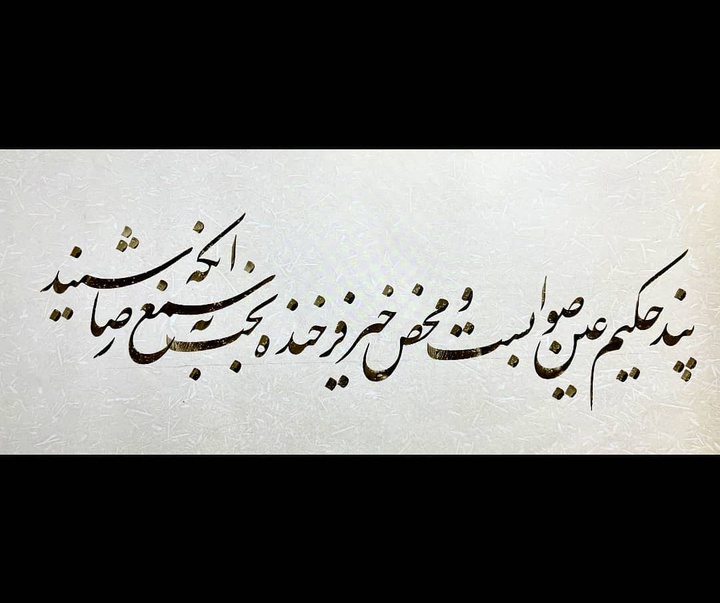 پند حکیم عین صوابست و محض خیر فرخنده بخت آنکه به سمع رضا شنید